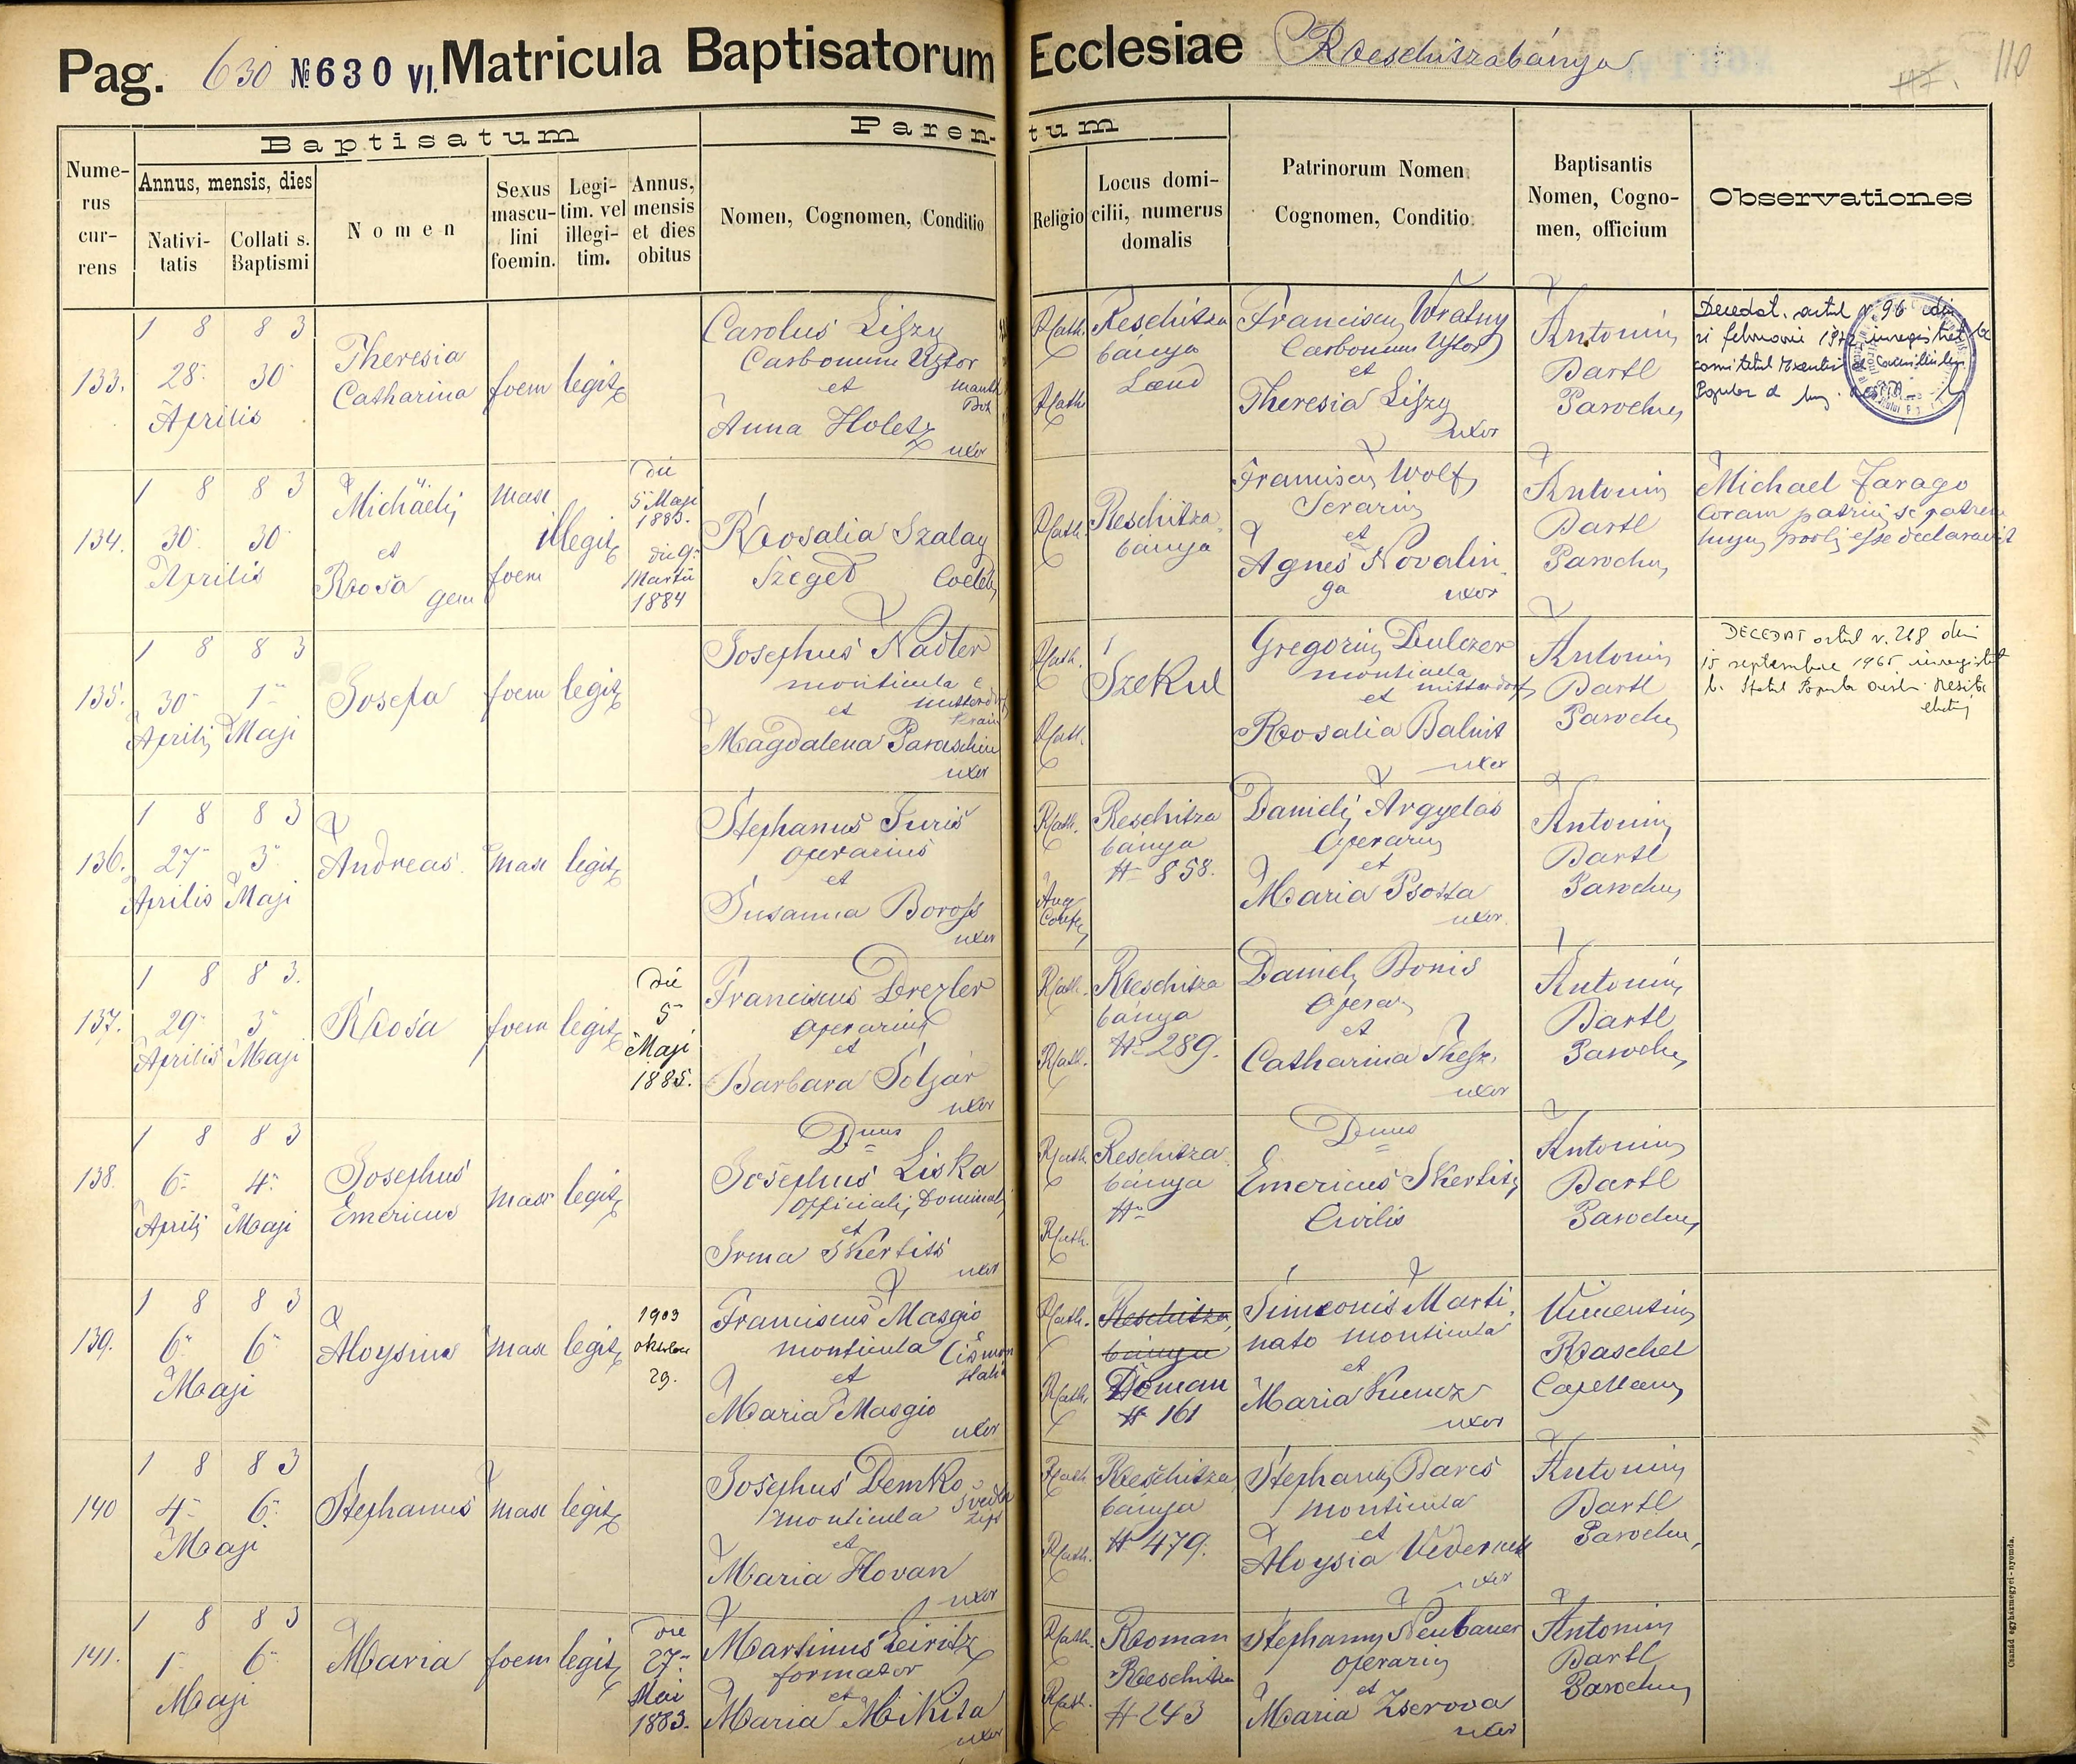 Pag. 630 № 630 VI. Matricula Baptisatorum Ecclesiae Reschitzabánya
117. 110
Baptisatum
Parentum
Numerus currens
Annus, mensis, dies
Nativitatis
Collati s. Baptismi
Nomen
Sexus masculini foemin.
Legitim. vel illegitim.
Annus, mensis et dies obitus
Nomen, Cognomen, Conditio
Religio
Locus domicilii, numerus domalis
Patrinorum Nomen Cognomen, Conditio
Baptisantis Nomen, Cognomen, officium
Observationes
133.
1 8 8 3
28 30
Aprilis
Theresia
Catharina
foem
legit
Carolus Liszy
Carbonum Ustor
et
Anna Holetz
uxor
Rcath.
Rcath
Reschitza
bánya
Franciscus Wratny
Carbonum Ustor
et
Theresia Liszy
uxor
Antonius
Bartl
Parochus
Decedat. actul N. 96 din
134.
1 8 8 3
30 30
Aprilis
Michäelis
et
Rosa gem
masc
foem
illegit
die
5 Maji
1883.
die 9
Martii
1884
Rosalia Szalay
Szeged Coeleb
Rcath.
Reschitza
bánya
Franciscus Wolf
Serarius
et
Agnes Novalin
ga uxor
Antonius
Bartl
Parochus
Michael Farago
coram patrinis se patrem
hujus prolis esse declaravit
135.
1 8 8 3
30 1
Aprilis Maji
Josefa
foem
legit
Josephus Nadler
monticula
et
Magdalena Paraschiu
uxor
Rcath.
Rcath.
Szekul
Gregorius Dulczer
monticula
et
Rosalia Balint
uxor
Antonius
Bartl
Parochus
DECEDAT actul N. 218 din
15 septembrie 1965 inregistrat
136.
1 8 8 3
27 3
Aprilis Maji
Andreas
masc
legit
Stephanus Juris
operarius
et
Susanna Boross
uxor
Rcath.
Aug
Confes
Reschitza
bánya
# 858.
Danielis Argyelas
Operarius
et
Maria Psotta
uxor.
Antonius
Bartl
Parochus
137.
1 8 8 3.
29 3
Aprilis Maji
Rosa
foem
legit
die
5
Maji
1885.
Franciscus Drexler
operarius
et
Barbara Soljár
uxor
Rcath.
Rcath.
Reschitza
bánya
# 289.
Daniel Bonis
Operar
et
Catharina
uxor
Antonius
Bartl
Parochus
138.
1 8 8 3
6 4
Aprilis Maji
Josephus
Emericus
masc
legit
Dnus
Josephus Liska
officialis Dominalis
et
Irma Skerlits
uxor
Rcath.
Rcath.
Reschitza
bánya
#
Dnus
Emericus Skerlits
Civilis
Antonius
Bartl
Parochus
139.
1 8 8 3
6 6
Maji
Aloysius
masc
legit
1903
oktober
29.
Franciscus Masgio
monticula
et
Maria Masgio
uxor
Rcath.
Rcath.
Reschitza
bánya
Doman
# 161
Simeonis Marti
nato monticula
et
Maria Kuncz
uxor
Vincentius
Raschel
Capellanus
140
1 8 8 3
4 6
Maji
Stephanus
masc
legit
Josephus Demko
monticula
et
Maria Hovan
uxor
Rcath.
Rcath.
Reschitza
bánya
# 479.
Stephanus Bares
monticula
et
Aloysia
uxor
Antonius
Bartl
Parochus
141.
1 8 8 3
1 6
Maji
Maria
foem
legit
die
27
Mai
1883.
Martinus Leiritz
formator
et
Maria Mikita
uxor
Rcath.
Rcath.
Roman
Reschitza
# 243
Stephanus Neubauer
operarius
et
Maria Zserova
uxor
Antonius
Bartl
Parochus
Csanád egyházmegyei-nyomda.